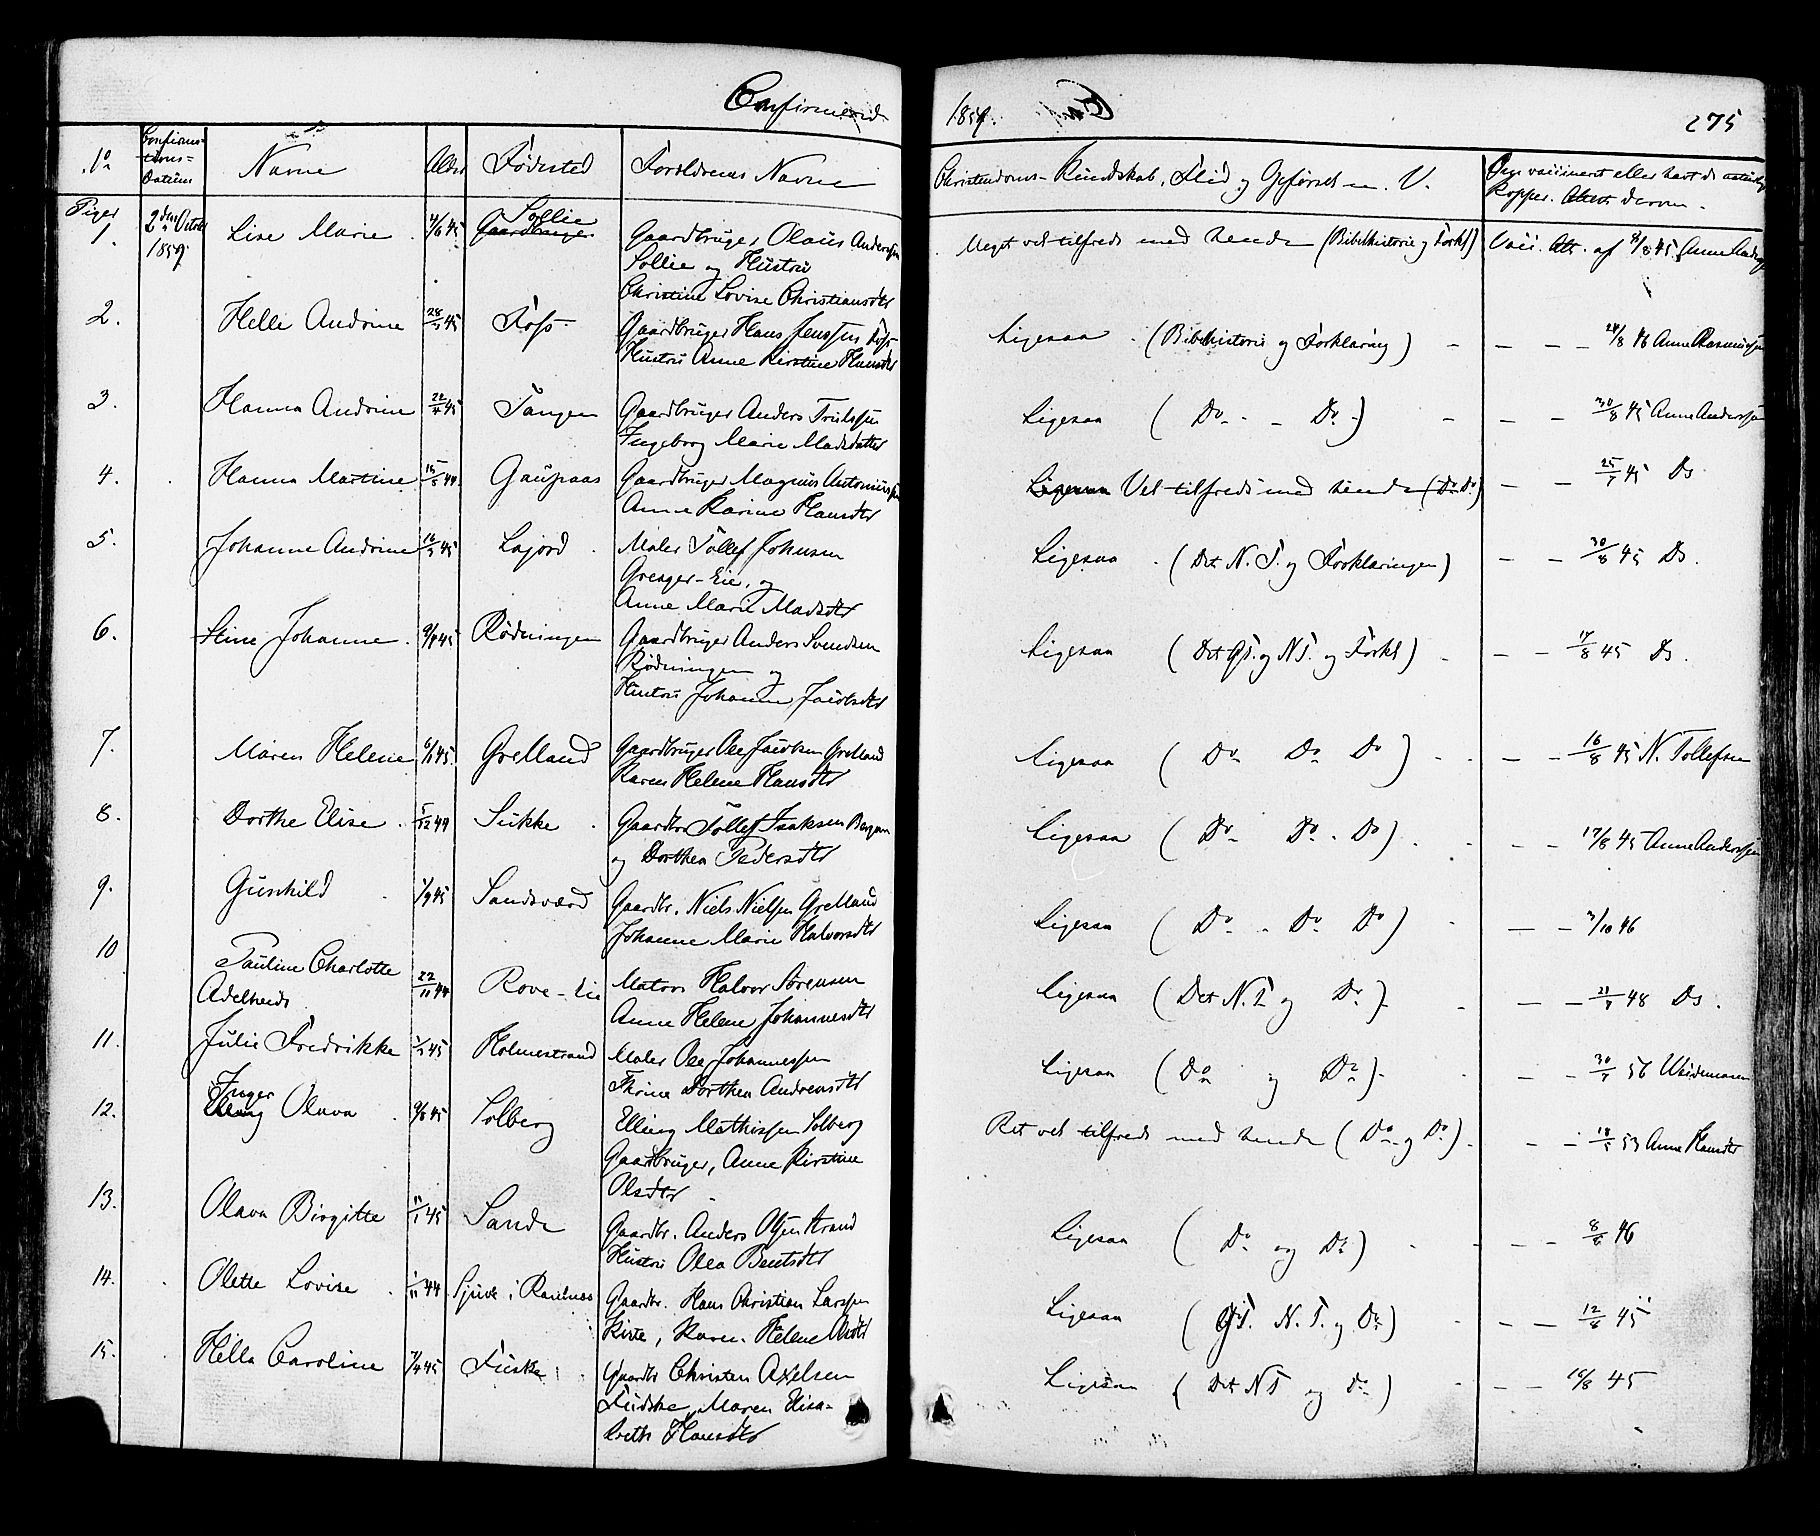 Confirmerede
1859.
275
No
Confirmations-Datum
Navne
Alder
Fødested
Forældrenes Navne
Christendoms-Kundskab, Flid og Opførsel m. V.
Kopper. Attest derom.
Piger
1. 2den Octob 1859 Lise Marie 4/6 45 Sollie Gaardbruger Olaus Anderssen
Sollie og Hustru
Christine Lovise Christiansdtr
Meget vel tilfreds med hende (Bibelhistorie og Forkl) Vacc. Att. af 8/8 45 Anne
2. Helle Andrine 28/ 45 Foss Gaardbruger Hans Jenssen Foss
Hustru Anne Kirstine Hansdtr
Ligesaa (Bibelhistorie og Forklaring) - - - 24/8 46 Anne Rasmussen
3. Hanna Andrine 22/4 45 Tangen Gaardbruger Anders
Ingeborg Marie Madsdatter
Ligesaa (Do - Do) - - - 30/8 45 Anne Anderssen
4. Hanna Martine 15/5 44 Gaupaas Gaardbruger Magnus Antoniussen
Anne Karine Hansdtr
Ligesaa Vel tilfreds med hende (Do Do) - - 25/7 45 Do
5. Johanne Andrine 45 Lajord Maler Tollef Johnsen
Greager-Eie, og
Anne Marie Madsdtr
Ligesaa (Det N. T. og Forklaringen) - - 30/8 45 Do.
6. Stine Johanne 9/8 45 Rødningen Gaardbruger Anders Svendsen
Rødningen og
Hustru Johanne Jacobsdtr
Ligesaa (Det GT. og NT. og Forkl) - - - 17/8 45 Do.
7. Maren Helene 45 Grelland Gaardbruger Ole Jacobsen Grelland
Karen Helene Hansdtr
Ligesaa (Do Do Do) - - - 16/8 45 N. Tollefsen
8. Dorthe Elise 5/12 44 Sukke Gaardbr Tollef Isaksen Bergan
og Dorthea Pedersdtr
Ligesaa (Do Do - Do) - - - 17/8 45 Anne Anderssen
9. Gunhild 1/9 45 Sandsværd Gaardbr. Niels Nielsen Grelland
Johanne Marie Halvorsdtr
Ligesaa (Do - Do Do) - - - 3/10 46
10 Pauline Charlotte
Adelheids 22/11 44 Rove-Eie Matros Halvor Sørensen
Anne Helene Johannesdtr
Ligesaa (Det N. T. og Do) - - - 21/7 48 Do.
11. Julie Fredrikke 45 Holmestrand Maler Ole Johannessen
Thrine Dorthea Andreasdtr
Ligesaa (Do og Do) - - - 30/7 56 Weidemann
12. Inger Olava 9/8 45 Solberg Elling Mathissen Solberg
Gaardbruger, Anne Kirstine
Olsdtr
Ret vel tilfreds med hende (Do og Do) - - - 18/5 53 Anne Hansdtr
13. Olava Birgitte 11/1 45 Sande Gaardbr. Anders Olsen Strand
Hustru Olea Bentsdtr
Ligesaa (Do og Do) - - - 8/6 46
14. Olette Lovise 1/11 44 Sjuve i Ramnes Gaardbr. Hans Christian Larssen
Kirte, Karen Helene Olsdtr
Ligesaa (GT. N. T. og Do) - - - 12/8 45
15. Hella Caroline 7/4 45 Fuske Gaardbr Christen Axelsen
Fudske, Maren Elisa-
beth Hansdtr
Ligesaa (Det NT og Do) - - - 16/8 45